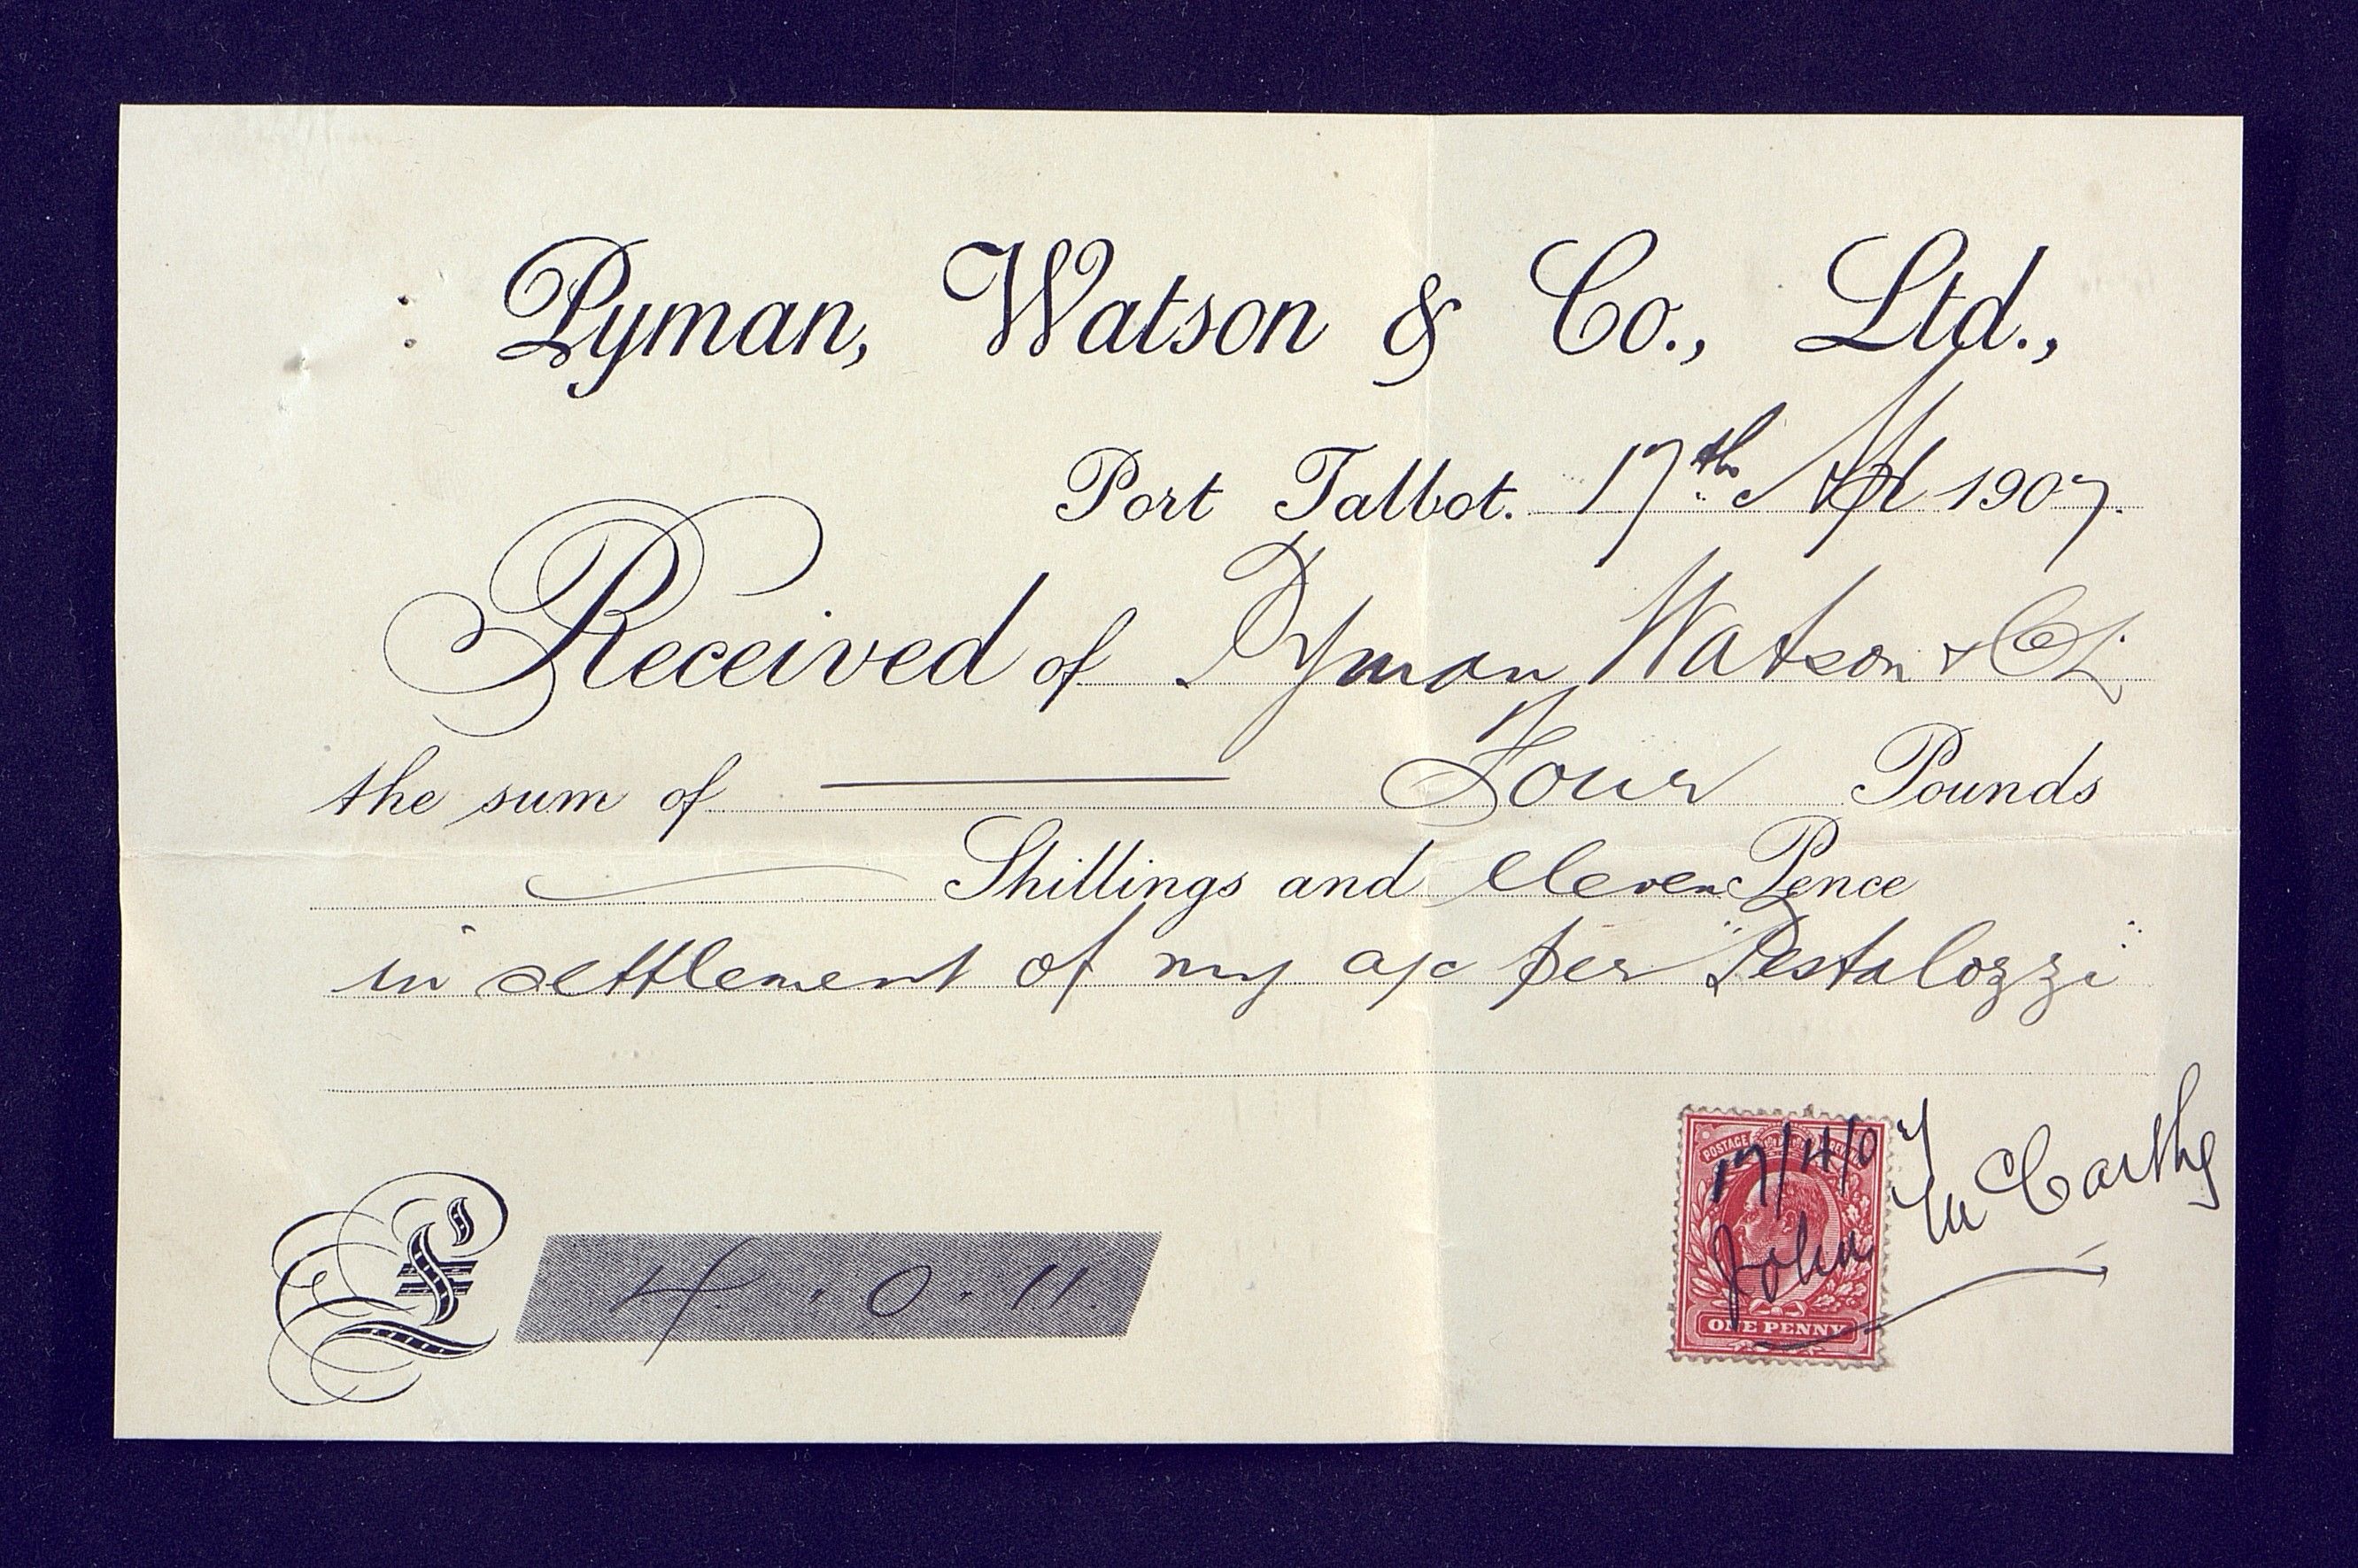 Pyman, Watson & Co., Ltd.,
Port Talbot. 17th Apl 1907.
Received of Pyman Watson & Co L
the sum of Four Pounds
Shillings and eleven Pence
in settlement of my a/c per "Pestalozzi"
POSTAGE
17/4/07
John McCarthy
ONE PENNY
£ 4 . 0 . 11.